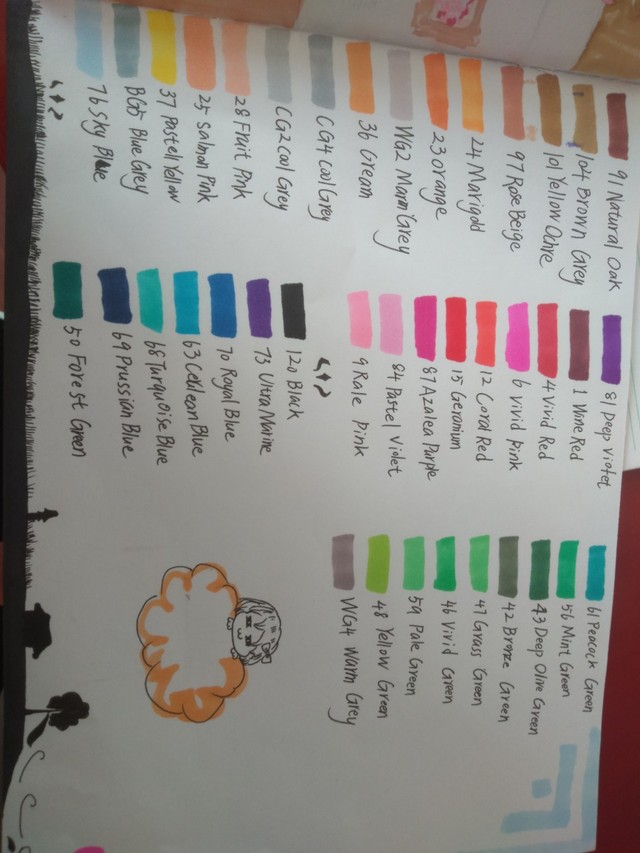 91 Natural Oak
104 Brown Grey
101 Yellow Ochre
97 Rose Beige
24 Marigold
23 orange
WG2 Warm Grey
36 Gream
CG4 Cool Grey
CG2 Cool Grey
28 Fruit Pink
25 Salmon Pink
37 Pastel Yellow
BG5 Blue Grey
76 Sky Blue
81 Deep Violet
1 Wine Red
4 Vivid Red
6 vivid pink
12 Coral Red
15 Geranium
87 Azalea Purple
84 Pastel Violet
9 Pale Pink
120 Black
73 Ultra Marine
70 Royal Blue
63 Cerulean Blue
68 Turquoise Blue
69 Prussian Blue
50 Forest Green
61 Peacock Green
56 Mint Green
43 Deep Olive Green
42 Bronze Green
47 Grass Green
46 Vivid Green
59 Pale Green
48 Yellow Green
WG4 Warm Grey